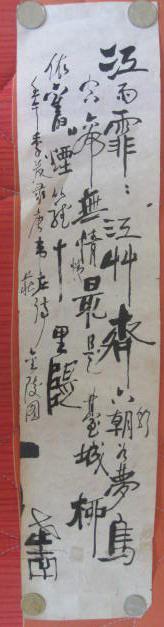 江雨霏霏江艸齊六朝如夢鳥
空啼無情最是臺城柳
依舊煙籠十里隄
壬午季夏錄唐韋莊詩 金陵圖